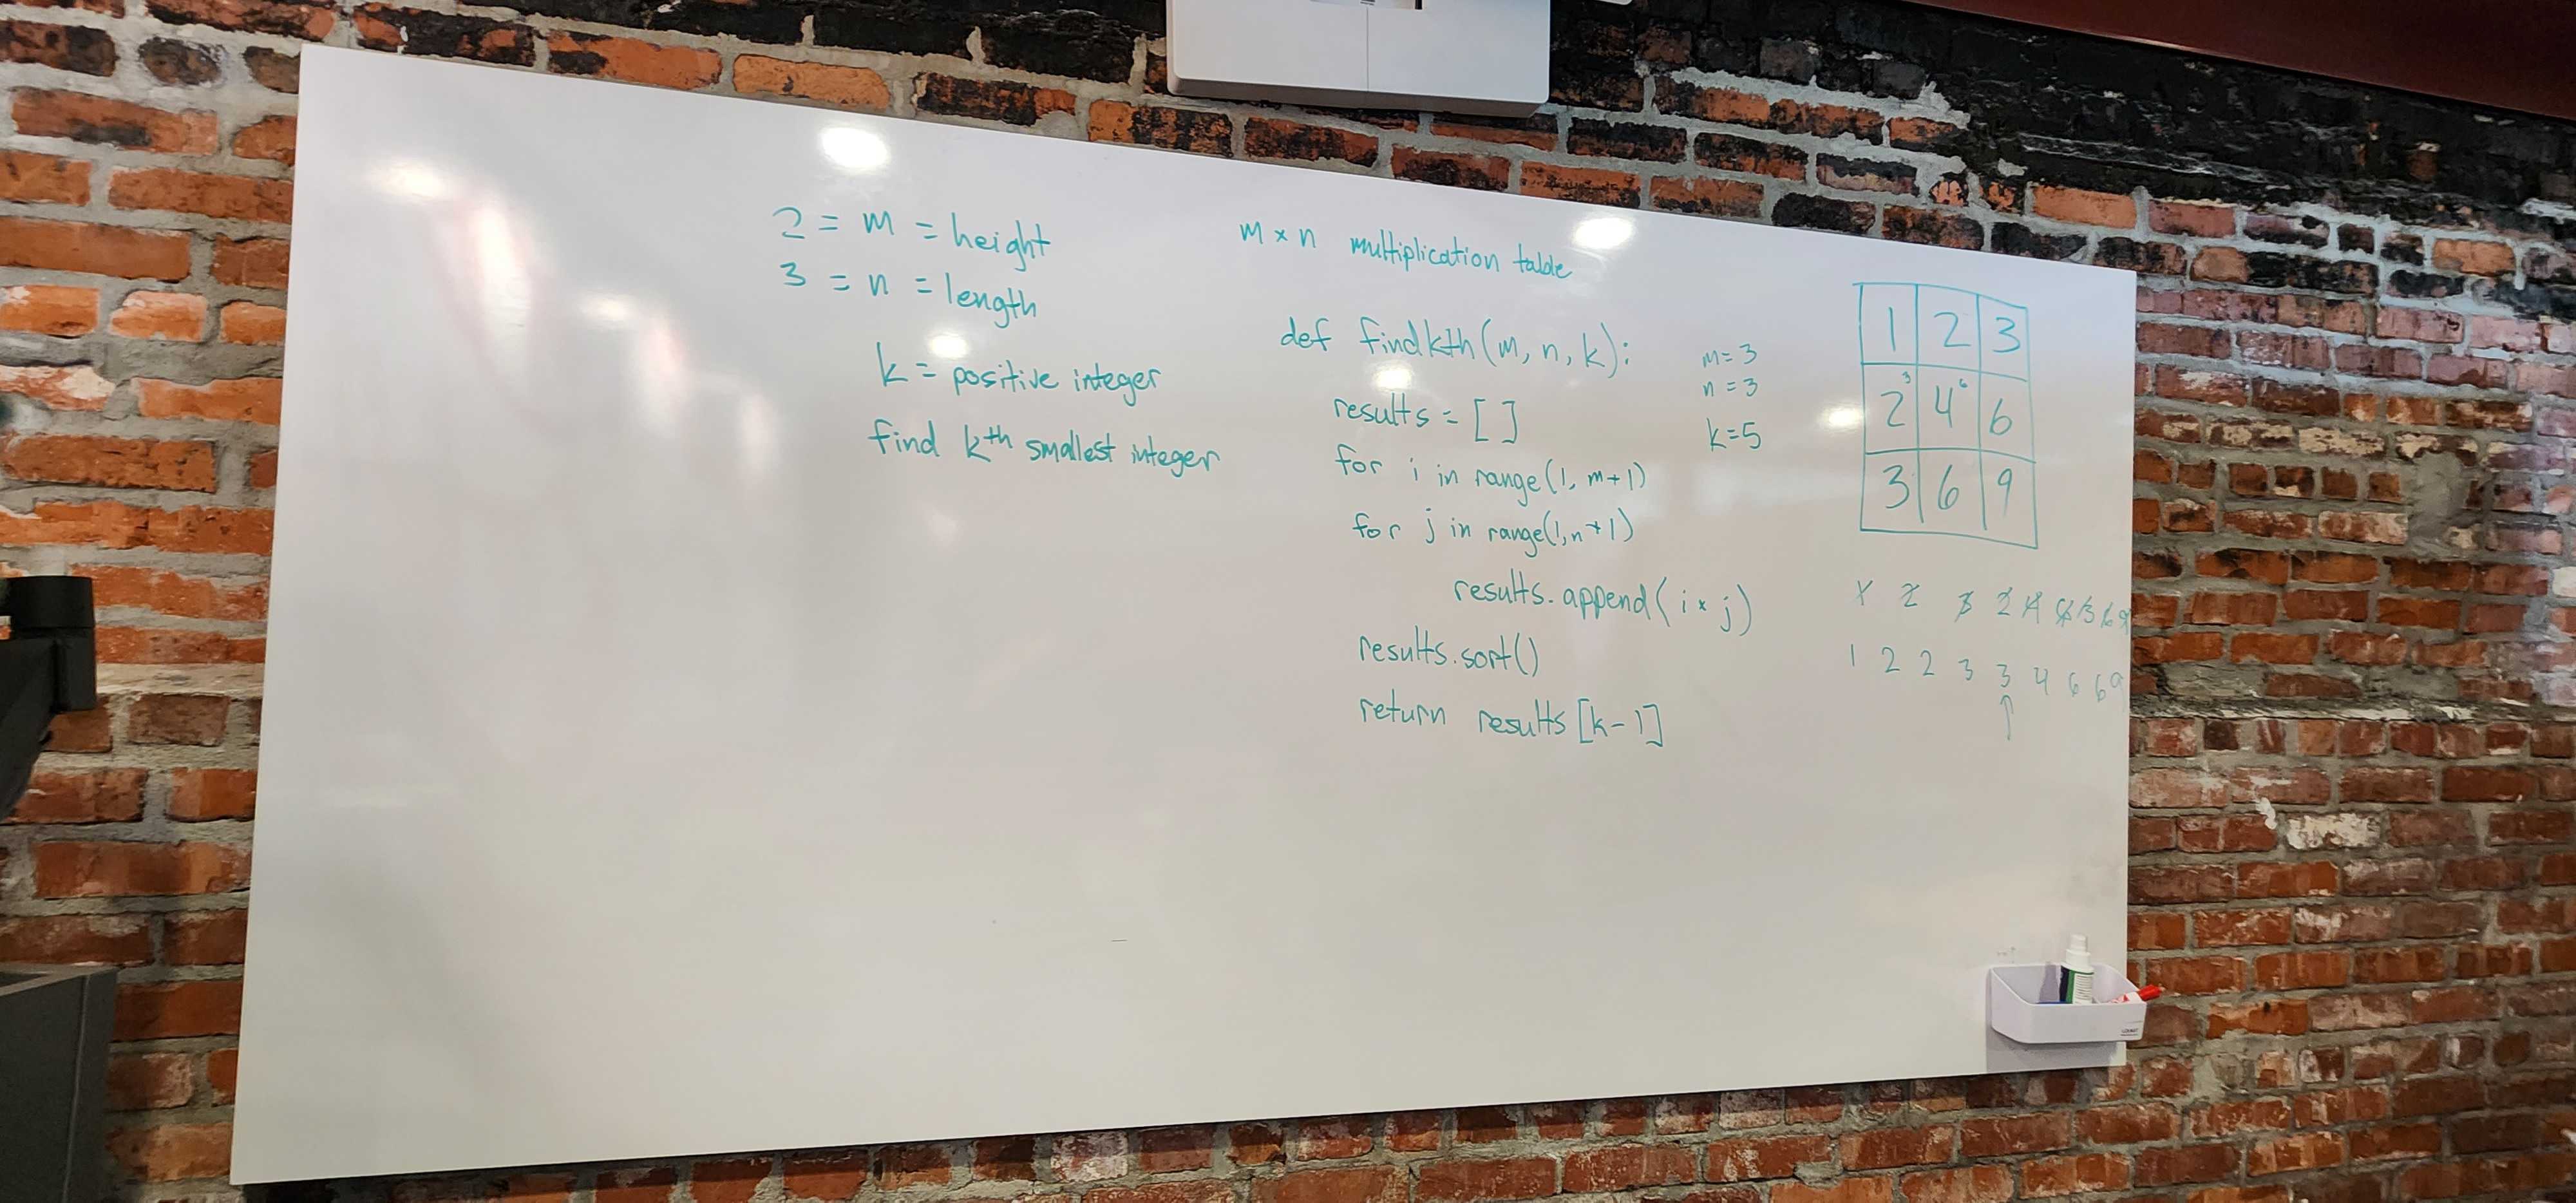 2 = m = height
3 = n = length
k = positive integer
find kth smallest integer
m × n multiplication table
def findkth(m, n, k):
results = [ ]
for i in range(1, m+1)
for j in range(1, n+1)
results.append(i × j)
results.sort()
return results[k-1]
m=3
n=3
k=5
1 2 3
2 3 4 6 6
3 6 9
1 2 3 2 4 6 3 6 9
1 2 2 3 3 4 6 6 9
↑